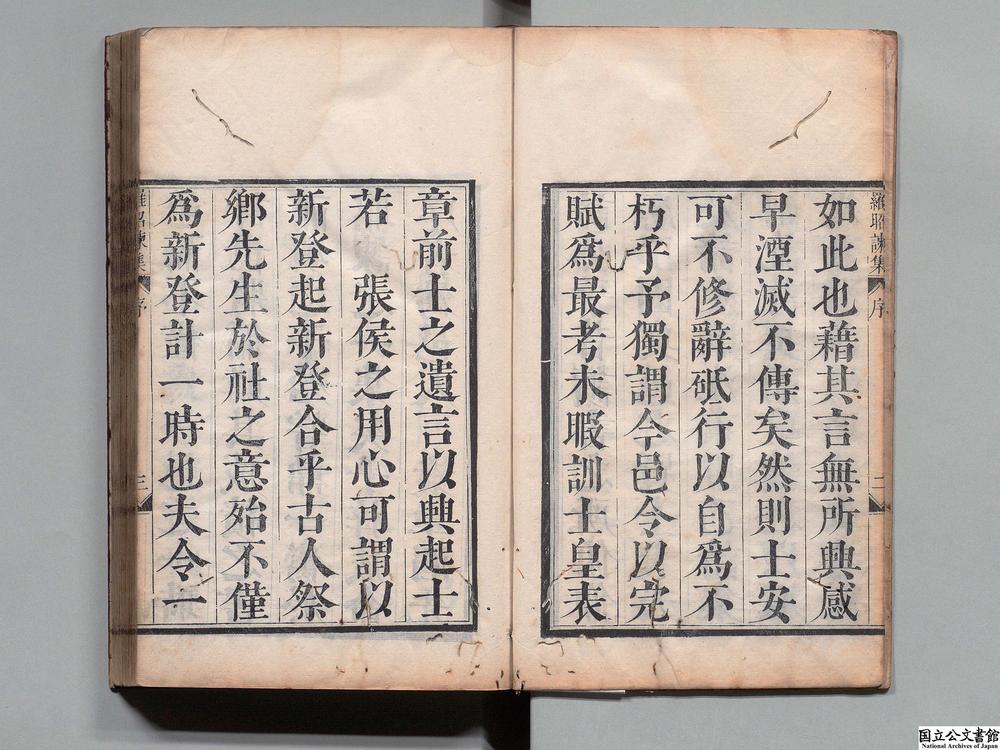 羅昭諫集 序 二
如此也藉其言無所興感
早湮滅不傳矣然則士安
可不修辭砥行以自爲不
朽乎予獨謂今邑令以完
賦爲最考未暇訓士皇表
章前士之遺言以興起士
若 張侯之用心可謂以
新登起新登合乎古人祭
鄉先生於社之意殆不僅
爲新登計一時也夫令一
羅昭諫集 序 三
国立公文書館
National Archives of Japan